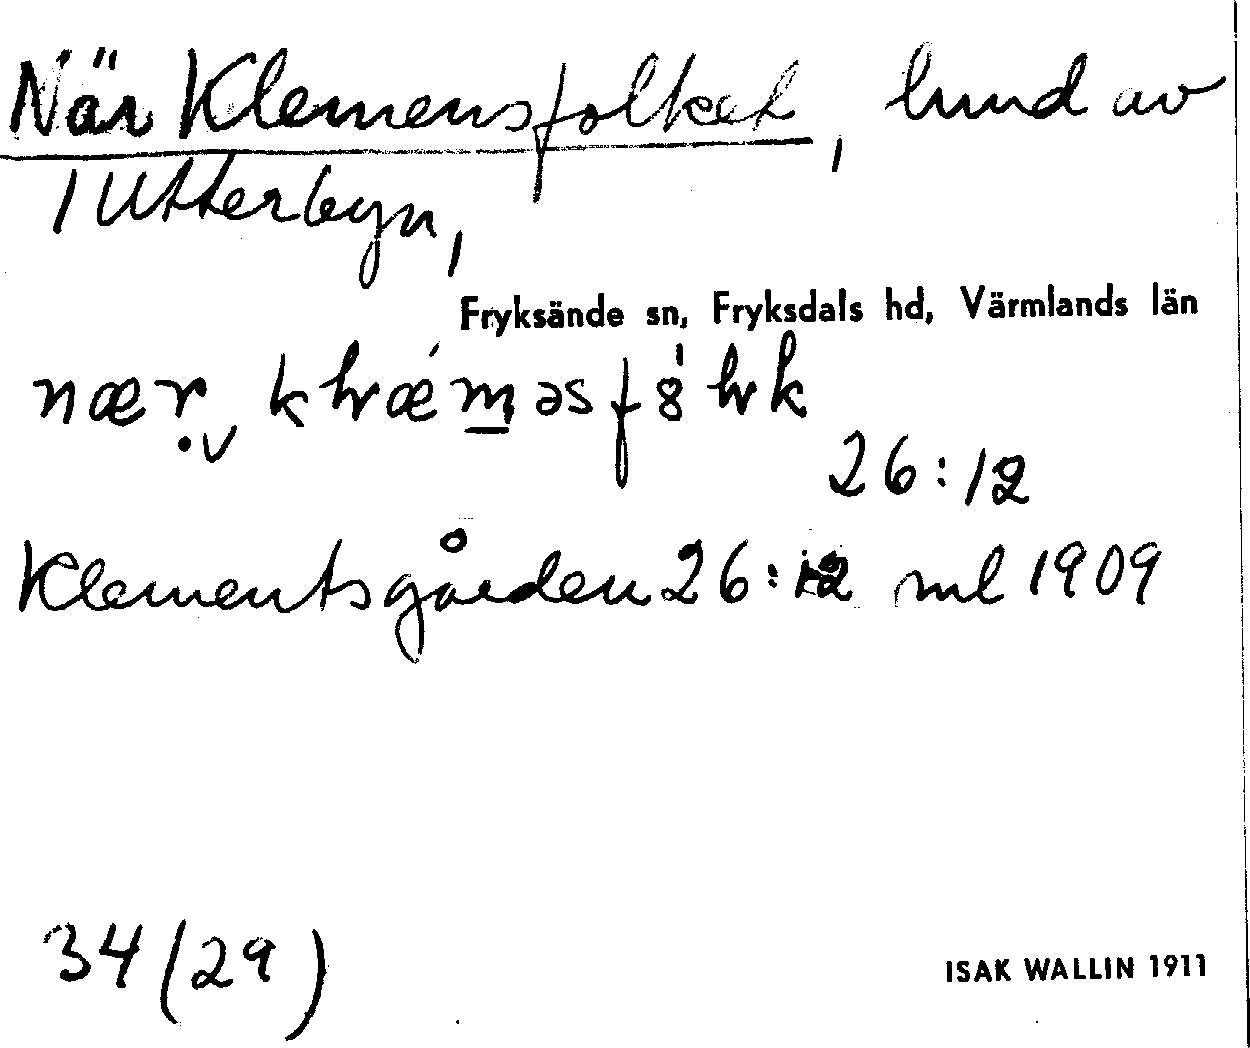 När Klemensfolket, hmd av
1 Utterbyn,
Fryksände sn, Fryksdals hd, Värmlands län
nær
26:12
Klementsgården 26:12 ml 1909
34 (29)
ISAK WALLIN 1911